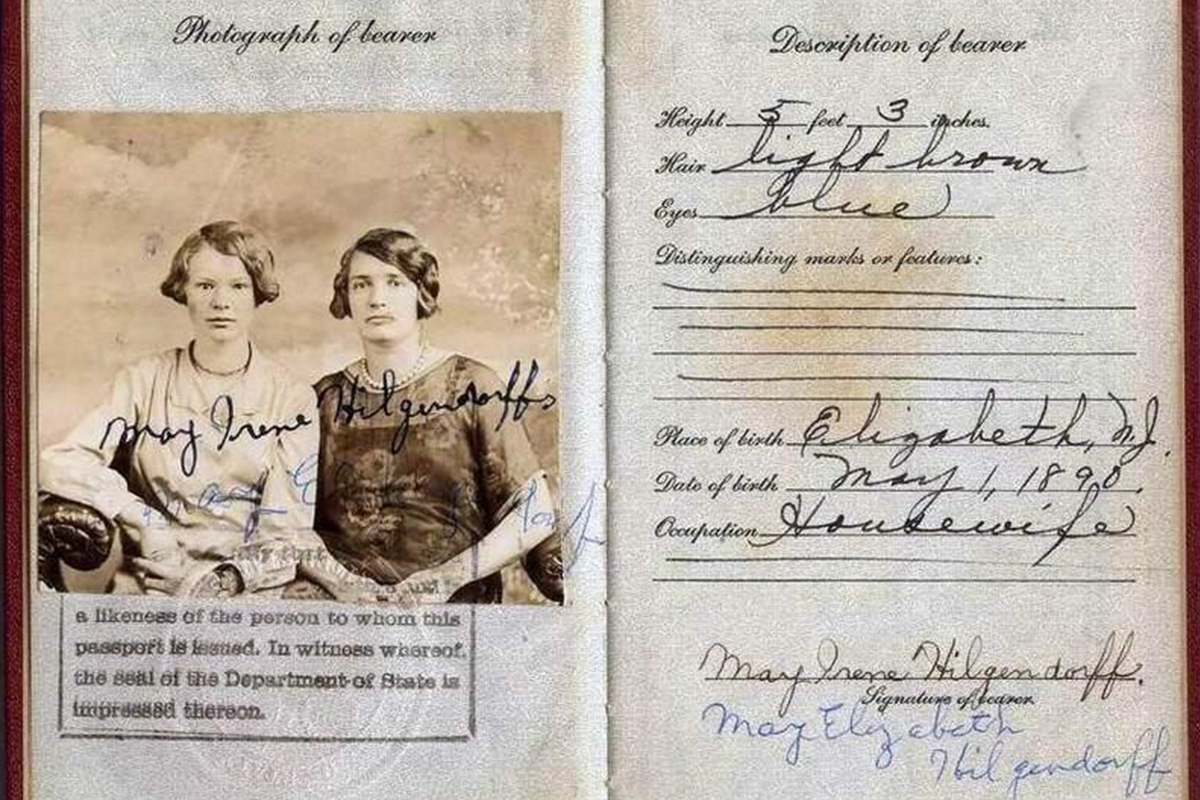 Photograph of bearer
May Irene Hilgendorff
May
a likeness of the person to whom this
passport is issued. In witness whereof,
the seal of the Department of State is
impressed thereon.
Description of bearer
Height 5 feet 3 inches.
Hair light brown
Eyes blue
Distinguishing marks or features:
Place of birth Elizabeth, N.J.
Date of birth May 1, 1890.
Occupation Housewife
May Irene Hilgendorff.
Signature of bearer.
May Elizabeth
Hilgendorff